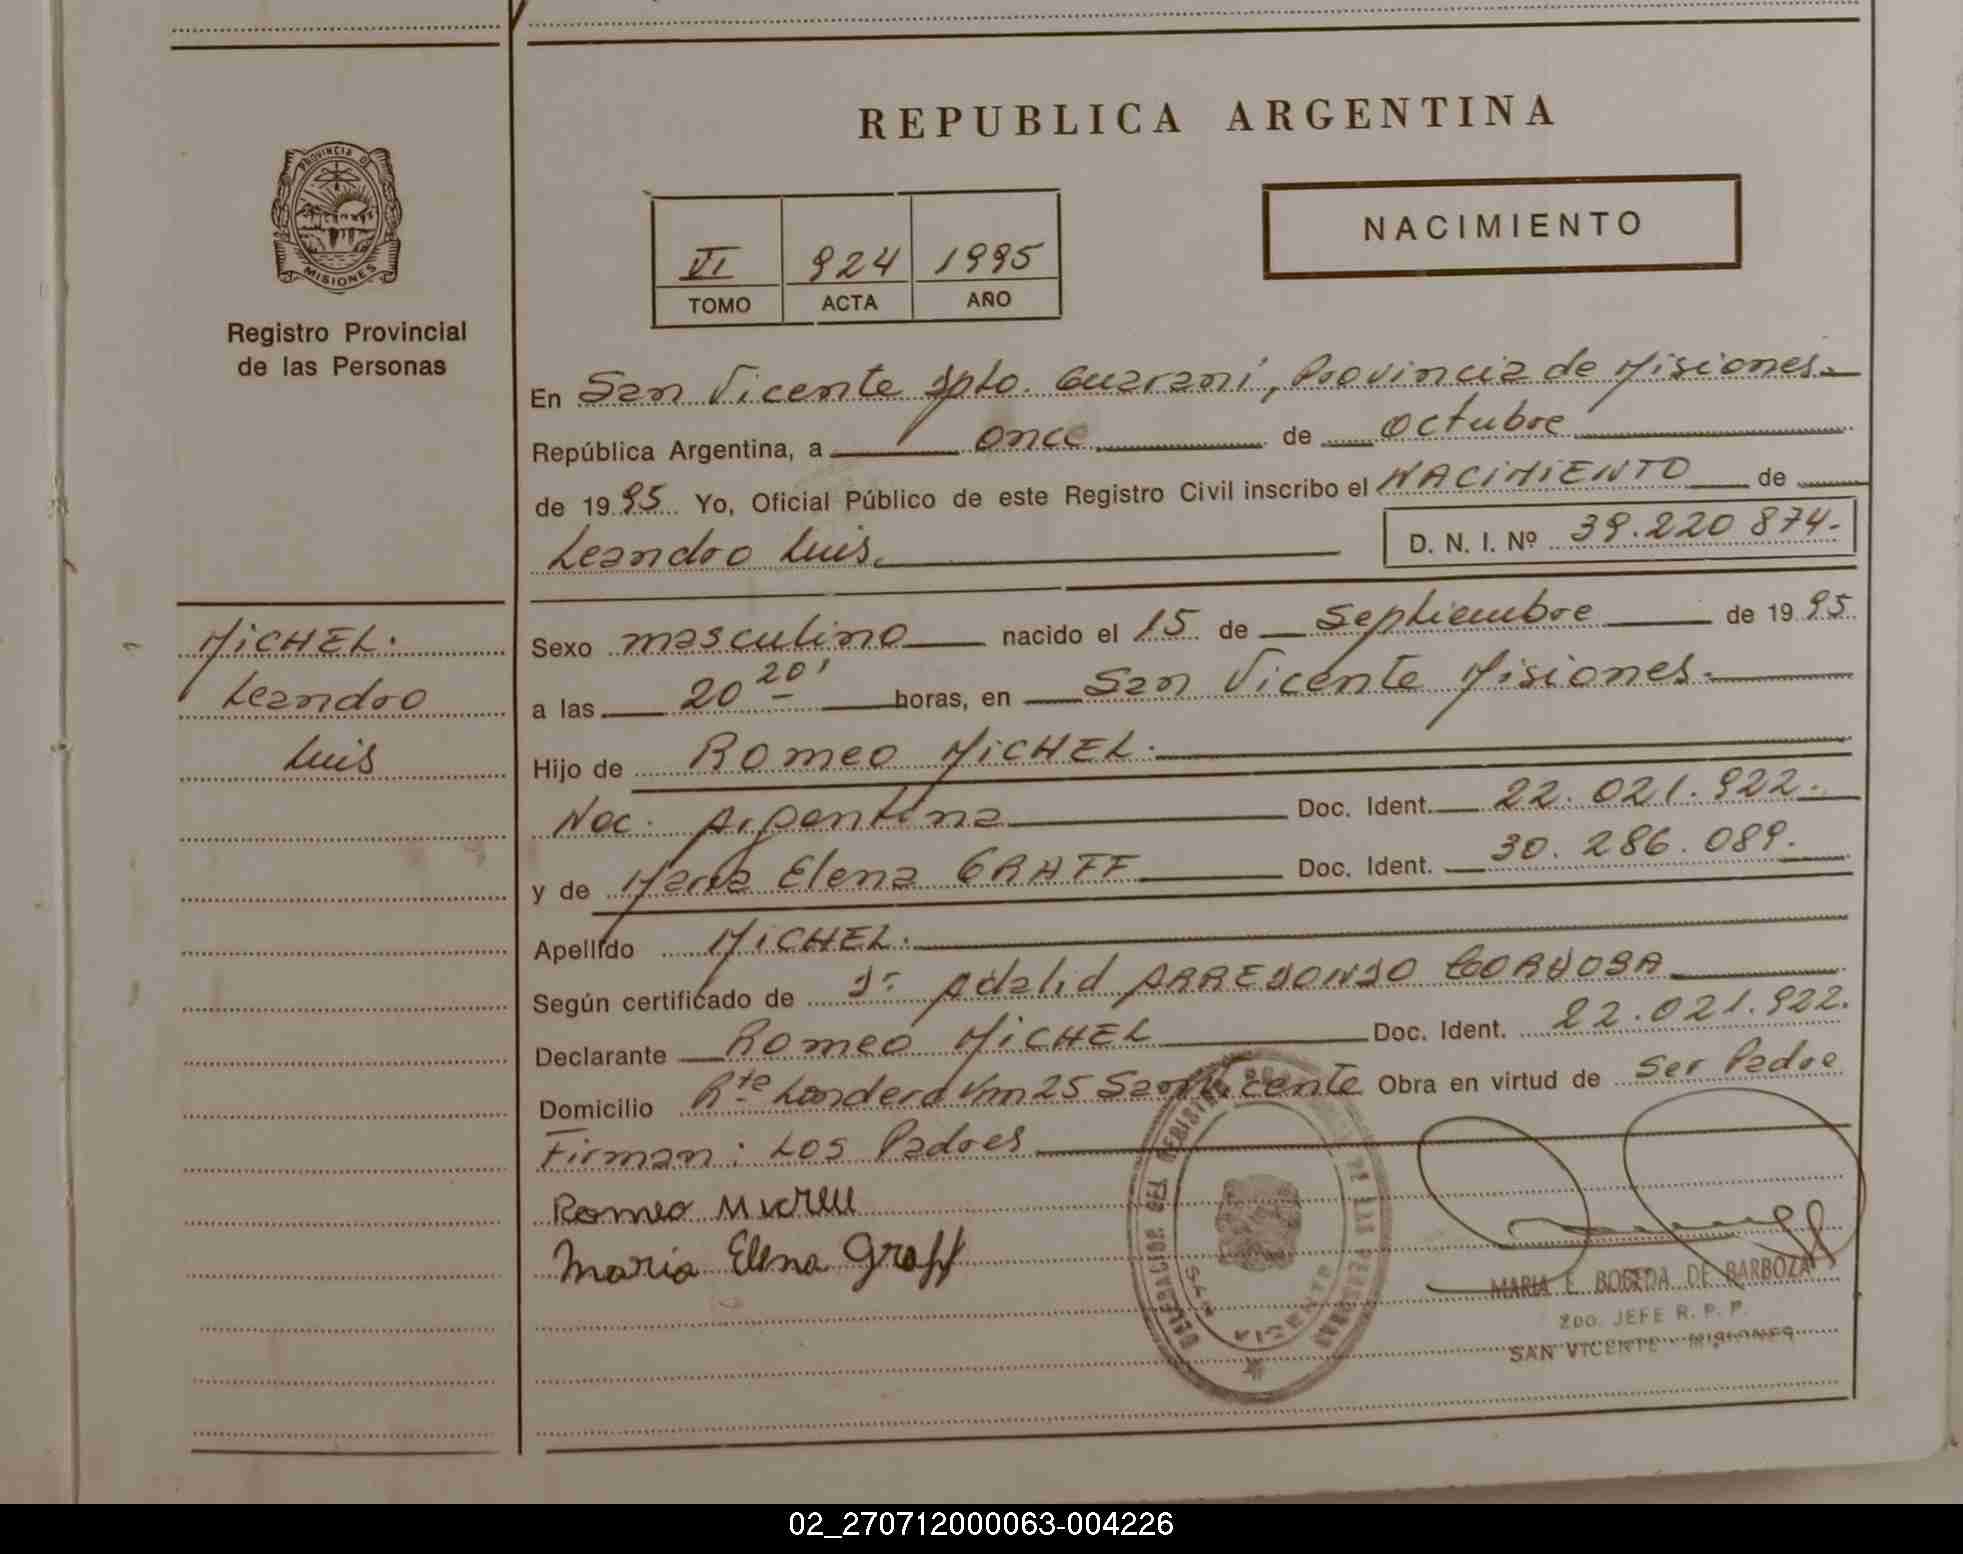 REPUBLICA ARGENTINA
PROVINCIA DE MISIONES
Registro Provincial
de las Personas
VI 924 1995
TOMO ACTA AÑO
NACIMIENTO
En San Vicente Dpto. Guaraní, Provincia de Misiones.
República Argentina, a once de octubre
de 1995 Yo, Oficial Público de este Registro Civil inscribo el NACIMIENTO de
Leandro Luis. D. N. I. Nº 39.220 874.
MICHEL.
Leandro
Luis
Sexo masculino nacido el 15 de septiembre de 1995.
a las 20 20' horas, en San Vicente Misiones.
Hijo de Romeo MICHEL.
Nac. Argentina Doc. Ident. 22.021.922.
y de Maria Elena GRAFF Doc. Ident. 30.286.089.
Apellido MICHEL.
Según certificado de Dr. Adalid ARREDONDO CORDOBA
Declarante Romeo MICHEL Doc. Ident. 22.021.922.
Domicilio Rte Londero Km 25 San Vicente Obra en virtud de Ser Padre
Firman: Los Padres
Romeo Michel
Maria Elena Graff
DELEGACION DEL REGISTRO DE LAS PERSONAS
SAN VICENTE
MARIA E. BOBEDA DE BARBOZA
2DO. JEFE R. P. P.
SAN VICENTE - MISIONES
02_270712000063-004226